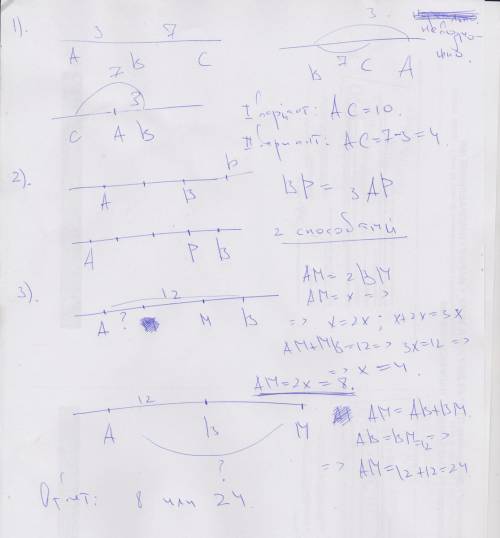 1).
3 7
A B C
3
B 7 C A
неподхо-
дит.
7
3
C A B
I вариант: AC=10.
II вариант: AC=7-3=4.
2).
P
A B
BP= 3AP
A P B
2 способами
3).
12
A ? M B
AM=2BM
AM=x =>
=> x=2x; x+2x=3x
AM+MB=12=> 3x=12 =>
=> x=4.
AM=2x=8.
12
A B M
?
AM=AB+BM.
AB=BM=12 =>
=> AM=12+12=24
Ответ: 8 или 24.